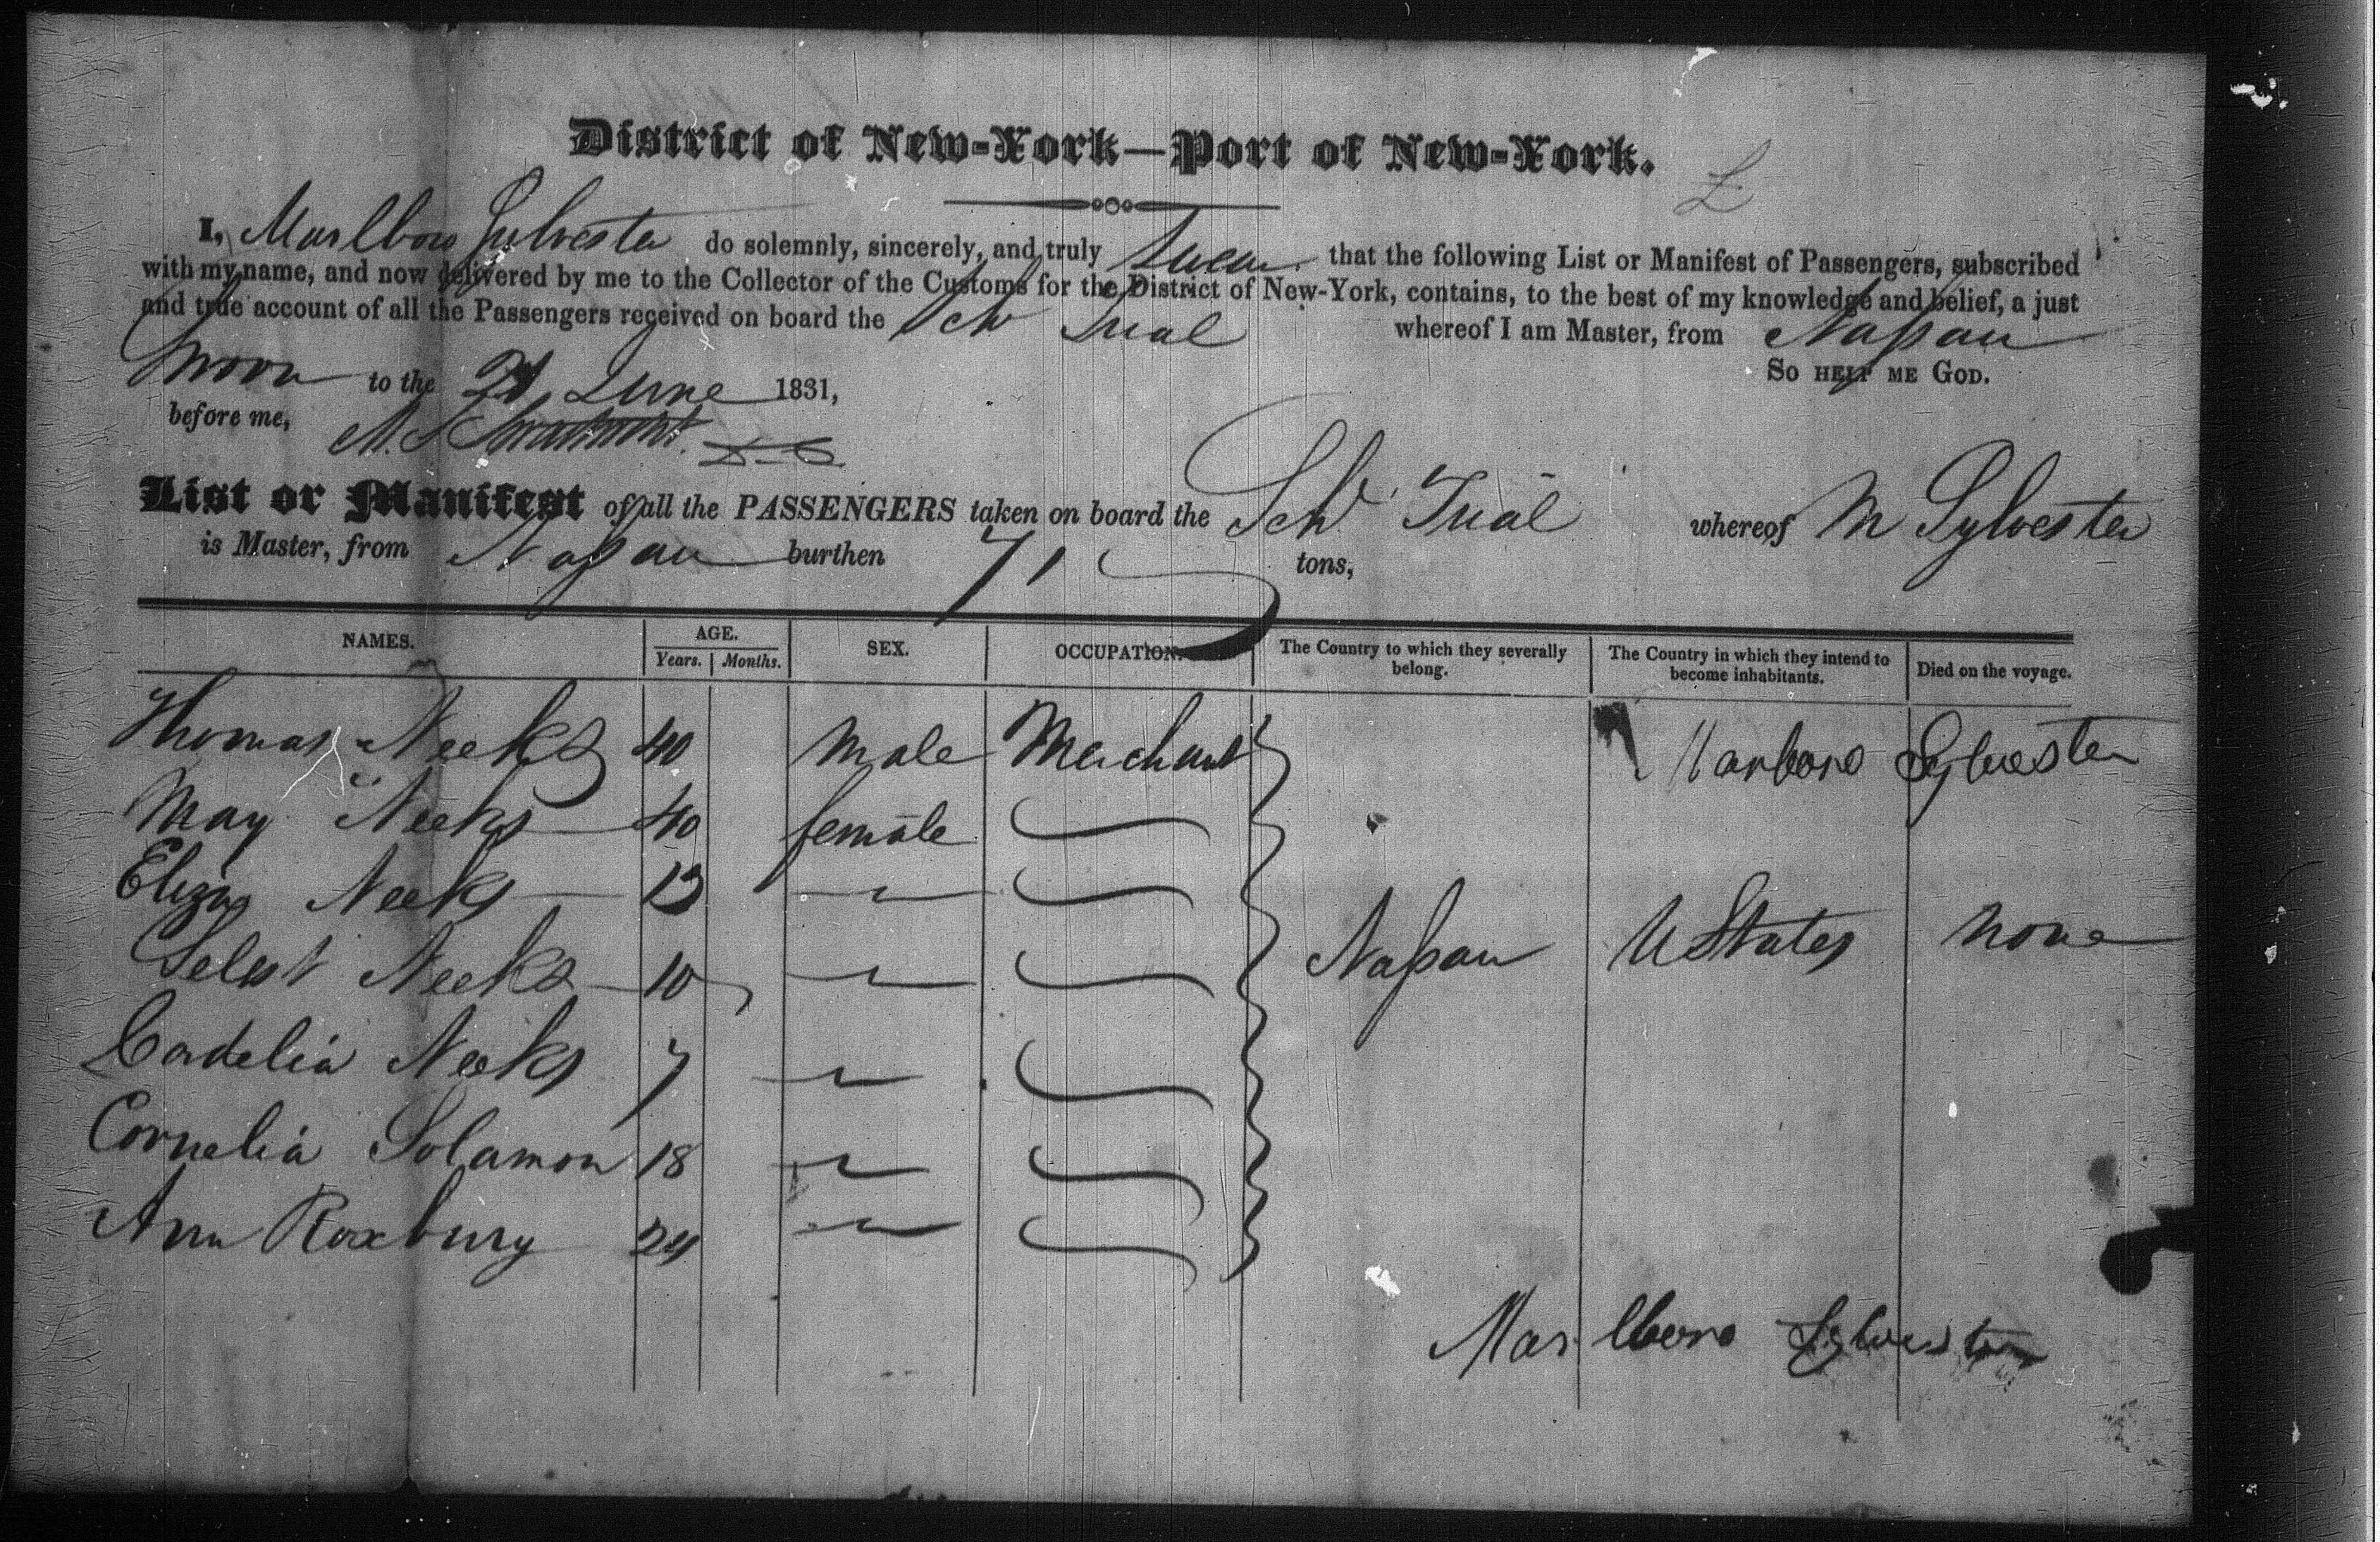 District of New-York—Port of New-York.
I, Marlboro Sylvester do solemnly, sincerely, and truly Swear that the following List or Manifest of Passengers, subscribed
with my name, and now delivered by me to the Collector of the Customs for the District of New-York, contains, to the best of my knowledge and belief, a just
and true account of all the Passengers received on board the Schr Trial whereof I am Master, from Nassau
Sworn to the 21 June 1831, So HELP ME GOD.
before me,
List or Manifest of all the PASSENGERS taken on board the Schr Trial whereof M Sylvester
is Master, from Nassau burthen 71 tons,
NAMES. AGE. Years. Months. SEX. OCCUPATION. The Country to which they severally belong. The Country in which they intend to become inhabitants. Died on the voyage.
Thomas Neeks 40 Male Merchant Marlboro Sylvester
May Neeks 40 female
Eliza Neeks 13
Selest Neeks 10 Nassau U States None
Cordelia Neeks 7
Cornelia Solamon 18
Ann Roxbury 24
Marlboro Sylvester